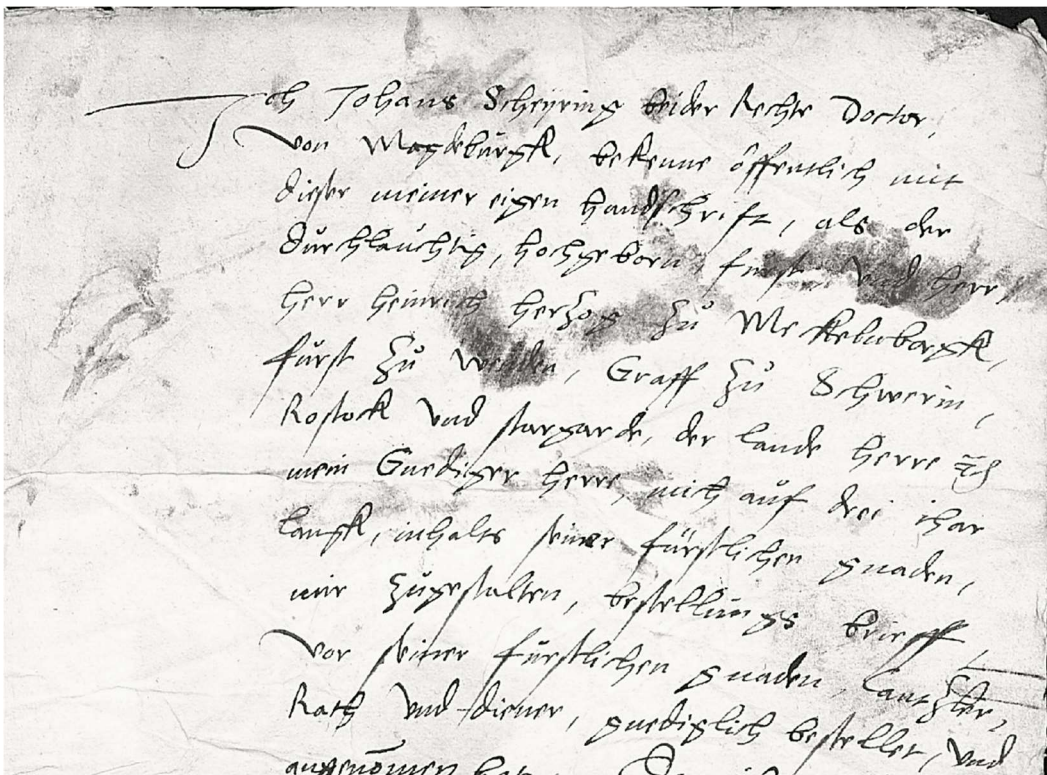 Ich Johans Scheyring beider Rechte Doctor,
von Magdeburgk, bekenne öffentlich mit
dieser meiner eigen handschrift, als der
durchlauchtig, hochgeborn, furst und herr,
herr heinrich herzog zů Mekelnborgk,
fürst zů wenden, Graff zů Schwerin,
Rostock vnd stargarde, der lande herre
mein Gnediger herre, mich auf drei ihar
langk, inhalts seiner fürstlichen gnaden,
mir zůgestalten, bestellungs brieff,
vor seiner fürstlichen gnaden, Cantzler,
Rath vnd diener, gnediglich bestellet, vnd
angenomen